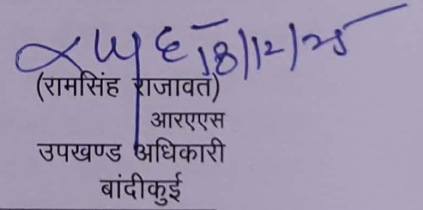 18/12/25
(रामसिंह राजावत)
आरएएस
उपखण्ड अधिकारी
बांदीकुई